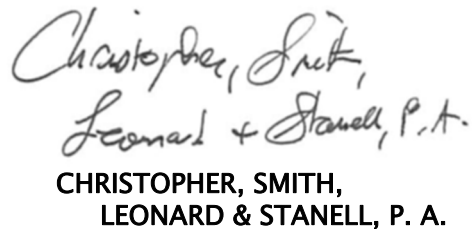 Christopher, Smith,
Leonard + Stanell, P. A.
CHRISTOPHER, SMITH,
LEONARD & STANELL, P. A.